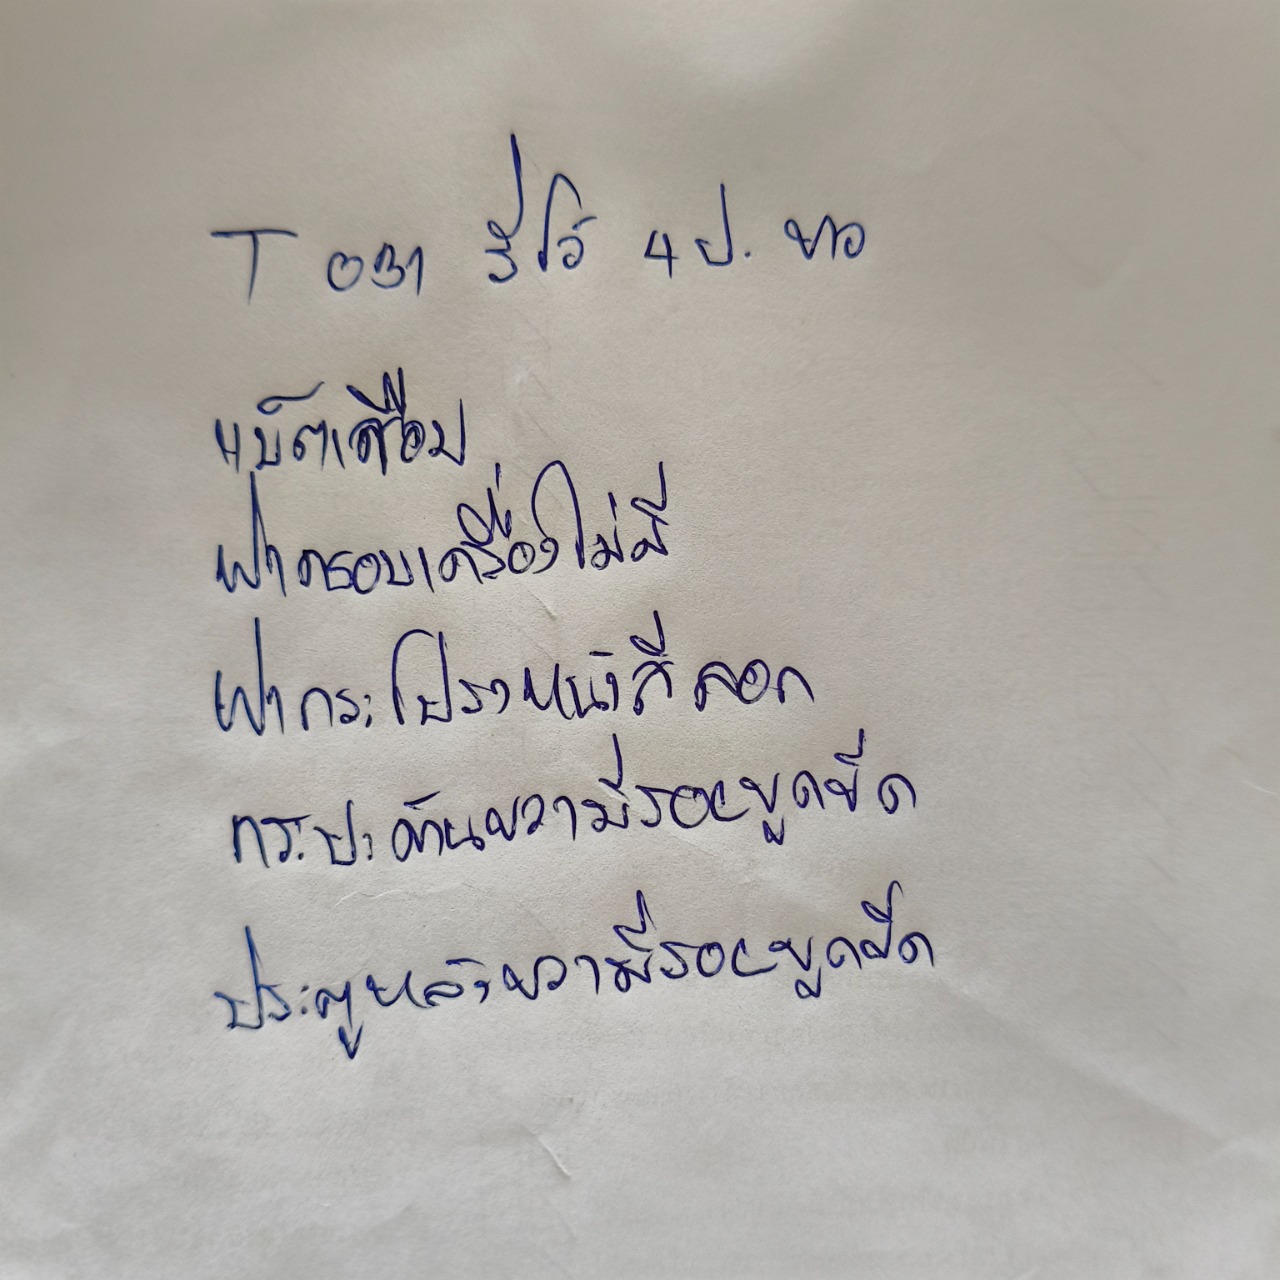 T 031 รีโว่ 4 ป. ขาว
แบ็ตเสื่อม
ฝาครอบเครื่องไม่มี
ฝากระโปรงหน้าสีลอก
กระบะด้านขวามีรอยขูดขีด
ประตูหลังขวามีรอยขูดขีด